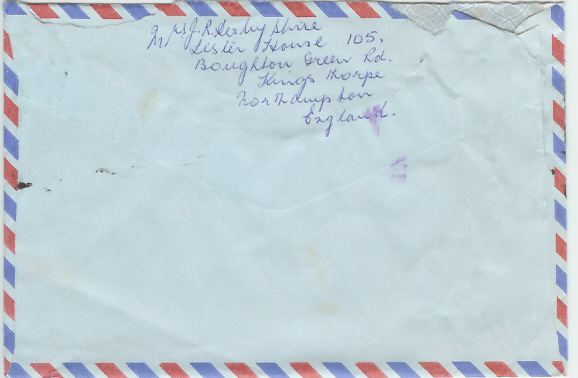 Mrs J. R. Derbyshire
Lister House 105.
Boughton Green Rd.
Kingsthorpe
Northampton
England.